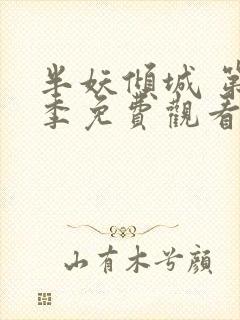 半妖傾城 第
季免費觀看
山有木兮顏